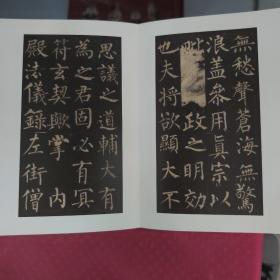 無愁聲蒼海無驚
浪蓋參用真宗以
毗政之明効
也夫將欲顯大不
思議之道輔大有
為之君固必有冥
符玄契歟掌內
殿法儀錄左街僧